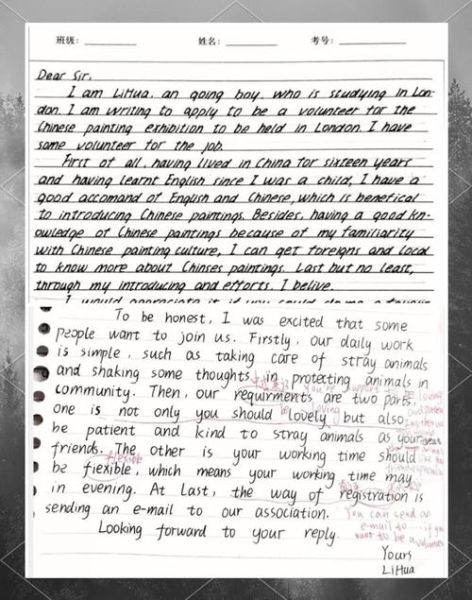 班级: 姓名: 考号:
Dear Sir,
I am LiHua, an going boy, who is studying in Lon-
don. I am writing to apply to be a volunteer for the
Chinese painting exhibition to be held in London. I have
some volunteer for the job.
First of all, having lived in China for sixteen years
and having learnt English since I was a child, I have a
good accomand of English and Chinese, which is benefical
to introducing Chinese paintings. Besides, having a good kn-
owledge of Chinese paintings because of my familiarity
with Chinese painting culture, I can get foreigns and local
to know more about Chinses paintings. Last but no least,
through my introducing and efforts, I belive.
To be honest, I was excited that some
people want to join us. Firstly, our daily work
is simple, such as taking care of stray animals
and shaking some thoughts in protecting animals in
community. Then, our requirments are two parts.
one is not only you should be lovely, but also
be patient and kind to stray animals as your
friends. The other is your working time should
flexible
be fiexible, which means your working time may
in evening. At Last, the way of registration is
sending an e-mail to our association. You can send an
e-mail to
Looking forward to your reply.
want to be a
Yours
LiHua